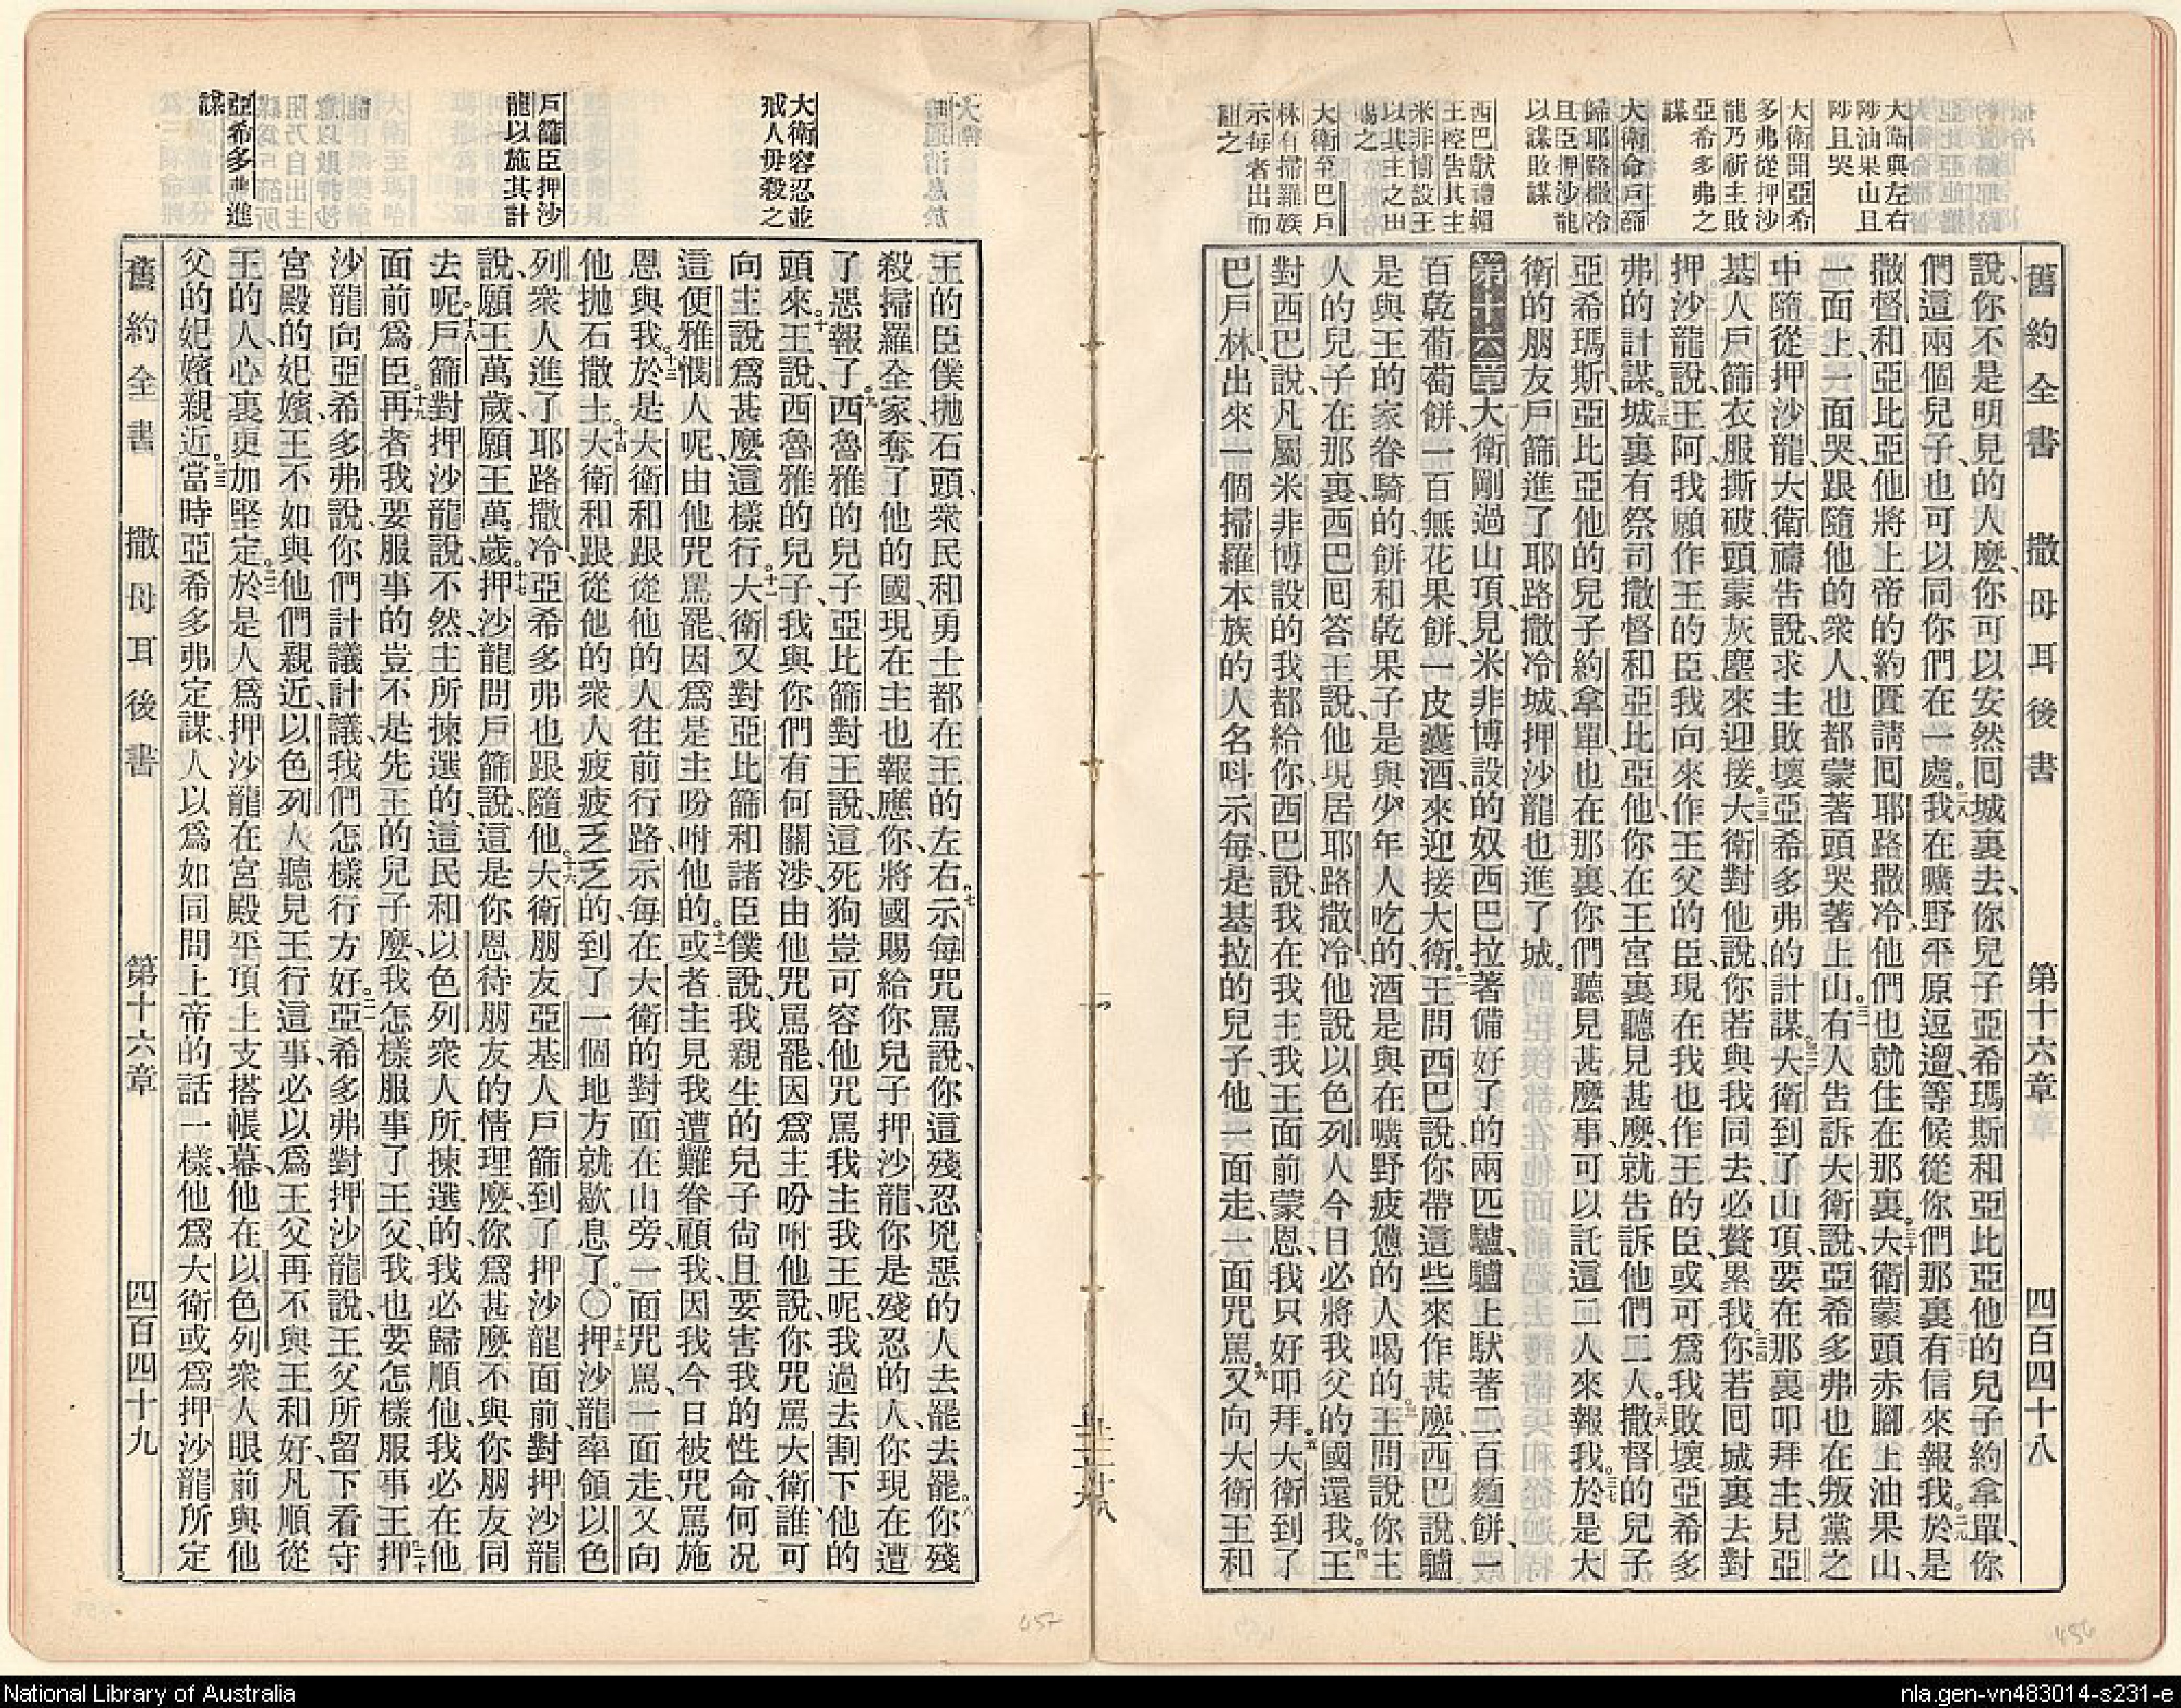 舊約全書 撒母耳後書 第十六章 四百四十八
大衛與左右
陟油果山且
陟且哭
大衛聞亞希
多弗從押沙
龍乃祈主敗
亞希多弗之
謀
大衛命戶篩
歸耶路撒冷
且臣押沙龍
以謀敗謀
西巴獻禮緝
王控告其主
米非博設王
以其主之田
賜之
大衛至巴戶
林有掃羅族
示每者出而
詛之
說、你不是明見的人麼、你可以安然回城裏去、你兒子亞希瑪斯和亞比亞他的兒子約拿單、你
們這兩個兒子、也可以同你們在一處。二八我在曠野平原逗遛、等候從你們那裏有信來報我。二九於是
撒督和亞比亞他將上帝的約匱請回耶路撒冷、他們也就住在那裏。三十大衛蒙頭赤腳上油果山、
一面上、一面哭、跟隨他的衆人也都蒙著頭哭著上山。三一有人告訴大衛說、亞希多弗也在叛黨之
中隨從押沙龍、大衛禱告說、求主敗壞亞希多弗的計謀。三二大衛到了山頂、要在那裏叩拜主、見亞
基人戶篩衣服撕破、頭蒙灰塵來迎接。三三大衛對他說、你若與我同去必贅累我、三四你若回城裏去對
押沙龍說、王阿、我願作王的臣、我向來作王父的臣、現在我也作王的臣、或可爲我敗壞亞希多
弗的計謀。三五城裏有祭司撒督和亞比亞他、你在王宮裏聽見甚麼、就告訴他們二人。三六撒督的兒子
亞希瑪斯、亞比亞他的兒子約拿單、也在那裏、你們聽見甚麼事、可以託這二人來報我。三七於是大
衛的朋友戶篩進了耶路撒冷城、押沙龍也進了城。
第十六章 大衛剛過山頂、見米非博設的奴西巴拉著備好了的兩匹驢、驢上馱著二百麵餅、一
百乾葡萄餅、一百無花果餅、一皮囊酒、來迎接大衛。二王問西巴說、你帶這些來作甚麼、西巴說、驢
是與王的家眷騎的、餅和乾果子是與少年人吃的、酒是與在曠野疲憊的人喝的。三王問說、你主
人的兒子在那裏、西巴回答王說、他現居耶路撒冷、他說、以色列人今日必將我父的國還我。四王
對西巴說、凡屬米非博設的我都給你、西巴說、我在我主我王面前蒙恩、我只好叩拜。五大衛到了
巴戶林、出來一個掃羅本族的人名呌示每、是基拉的兒子、他一面走、一面咒罵、六又向大衛王和
大衛容忍並
戒人毋殺之
戶篩臣押沙
龍以施其計
亞希多弗進
謀
王的臣僕拋石頭、衆民和勇士都在王的左右。七示每咒罵說、你這殘忍兇惡的人去罷去罷。八你殘
殺掃羅全家、奪了他的國、現在主也報應你、將國賜給你兒子押沙龍、你是殘忍的人、你現在遭
了惡報了。九西魯雅的兒子、亞比篩對王說、這死狗豈可容他咒罵我主我王呢、我過去割下他的
頭來。十王說、西魯雅的兒子、我與你們有何關涉、由他咒罵罷、因爲主吩咐他說、你咒罵大衛、誰可
向主說爲甚麼這樣行。十一大衛又對亞比篩和諸臣僕說、我親生的兒子尙且要害我的性命、何况
這便雅憫人呢、由他咒罵罷、因爲是主吩咐他的。十二或者主見我遭難眷顧我、因我今日被咒罵施
恩與我。十三於是大衛和跟從他的人往前行路、示每在大衛的對面在山旁、一面咒罵、一面走、又向
他拋石撒土。十四大衛和跟從他的衆人疲疲乏乏的、到了一個地方就歇息了。〇十五押沙龍率領以色
列衆人進了耶路撒冷、亞希多弗也跟隨他。十六大衛朋友亞基人戶篩到了押沙龍面前、對押沙龍
說、願王萬歲、願王萬歲。十七押沙龍問戶篩說、這是你恩待朋友的情理麼、你爲甚麼不與你朋友同
去呢。十八戶篩對押沙龍說、不然、主所揀選的、這民和以色列衆人所揀選的、我必歸順他、我必在他
面前爲臣。十九再者我要服事的、豈不是先王的兒子麼、我怎樣服事了王父、我也要怎樣服事王。二十押
沙龍向亞希多弗說、你們計議計議、我們怎樣行方好。二一亞希多弗對押沙龍說、王父所留下看守
宮殿的妃嬪、王不如與他們親近、以色列人聽見王行這事、必以爲王父再不與王和好、凡順從
王的人、心裏更加堅定。二二於是人爲押沙龍在宮殿平頂上支搭帳幕、他在以色列衆人眼前與他
父的妃嬪親近。二三當時亞希多弗定謀、人以爲如同問上帝的話一樣、他爲大衛或爲押沙龍所定
舊約全書 撒母耳後書 第十六章 四百四十九
457
456
National Library of Australia
nla.gen-vn483014-s231-e